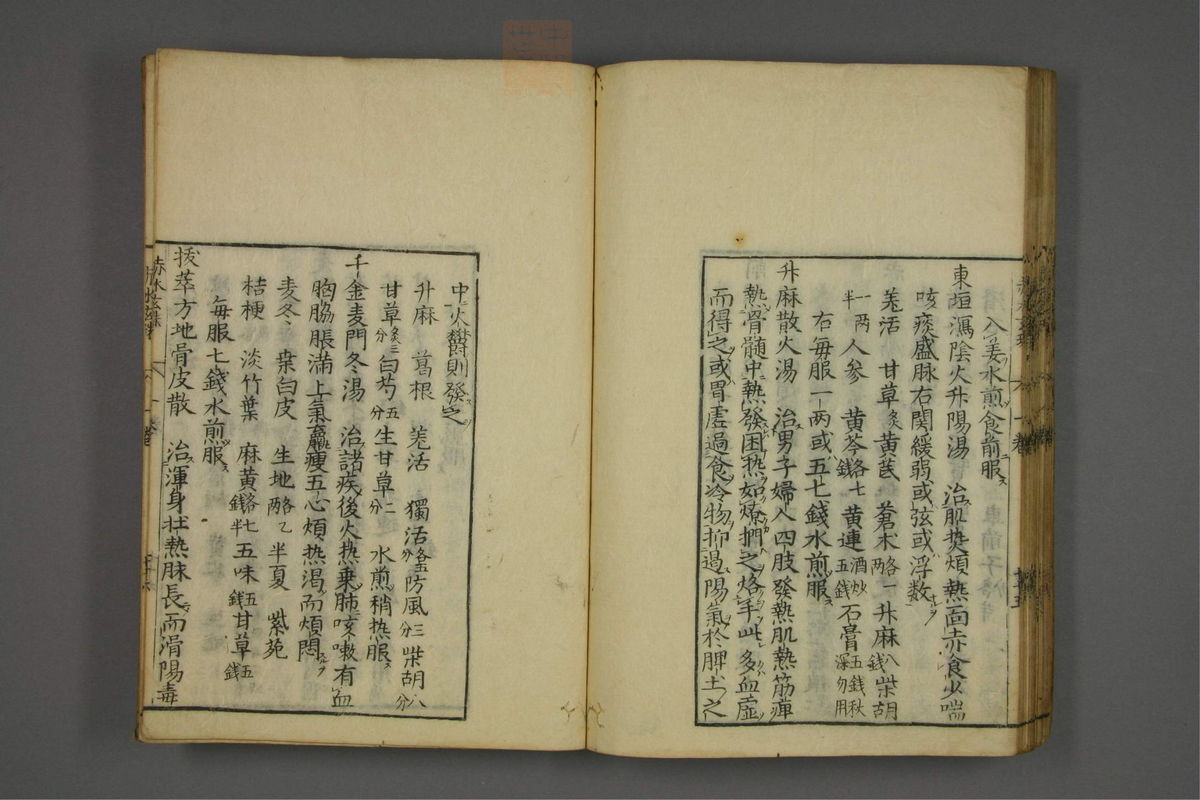 入姜水煎食前服ス
東垣瀉陰火升陽湯　治肌熱煩熱面赤食少喘
咳痰盛脉右関緩弱或弦或浮数
羌活　甘草炙黄茋　蒼朮各一两升麻八錢柴胡
一两半人参　黄芩各七錢黄連酒炒五錢石膏五錢秋深勿用
右毎服一两或五七錢水煎服
升麻散火湯　治男子婦人四肢發熱肌熱筋痺
熱骨髄中熱發困热如燎捫之烙手此多血虚
而得之或胃虚過食冷物抑遏陽氣於脾土之
中火欝則發之
升麻　葛根　羌活　獨活各五分防風三分柴胡八分
甘草炙三分白芍五分生甘草二分　水煎稍热服
千金麦門冬湯　治諸疾後火热乗肺咳嗽有血
胸脇脹満上氣羸瘦五心煩热渇而煩悶
麦冬　桒白皮　生地各乙两半夏　紫苑
桔梗　淡竹葉　麻黄各七錢半五味五錢甘草五錢
毎服七錢水煎服
拔萃方地骨皮散　治渾身壮熱脉長而滑陽毒